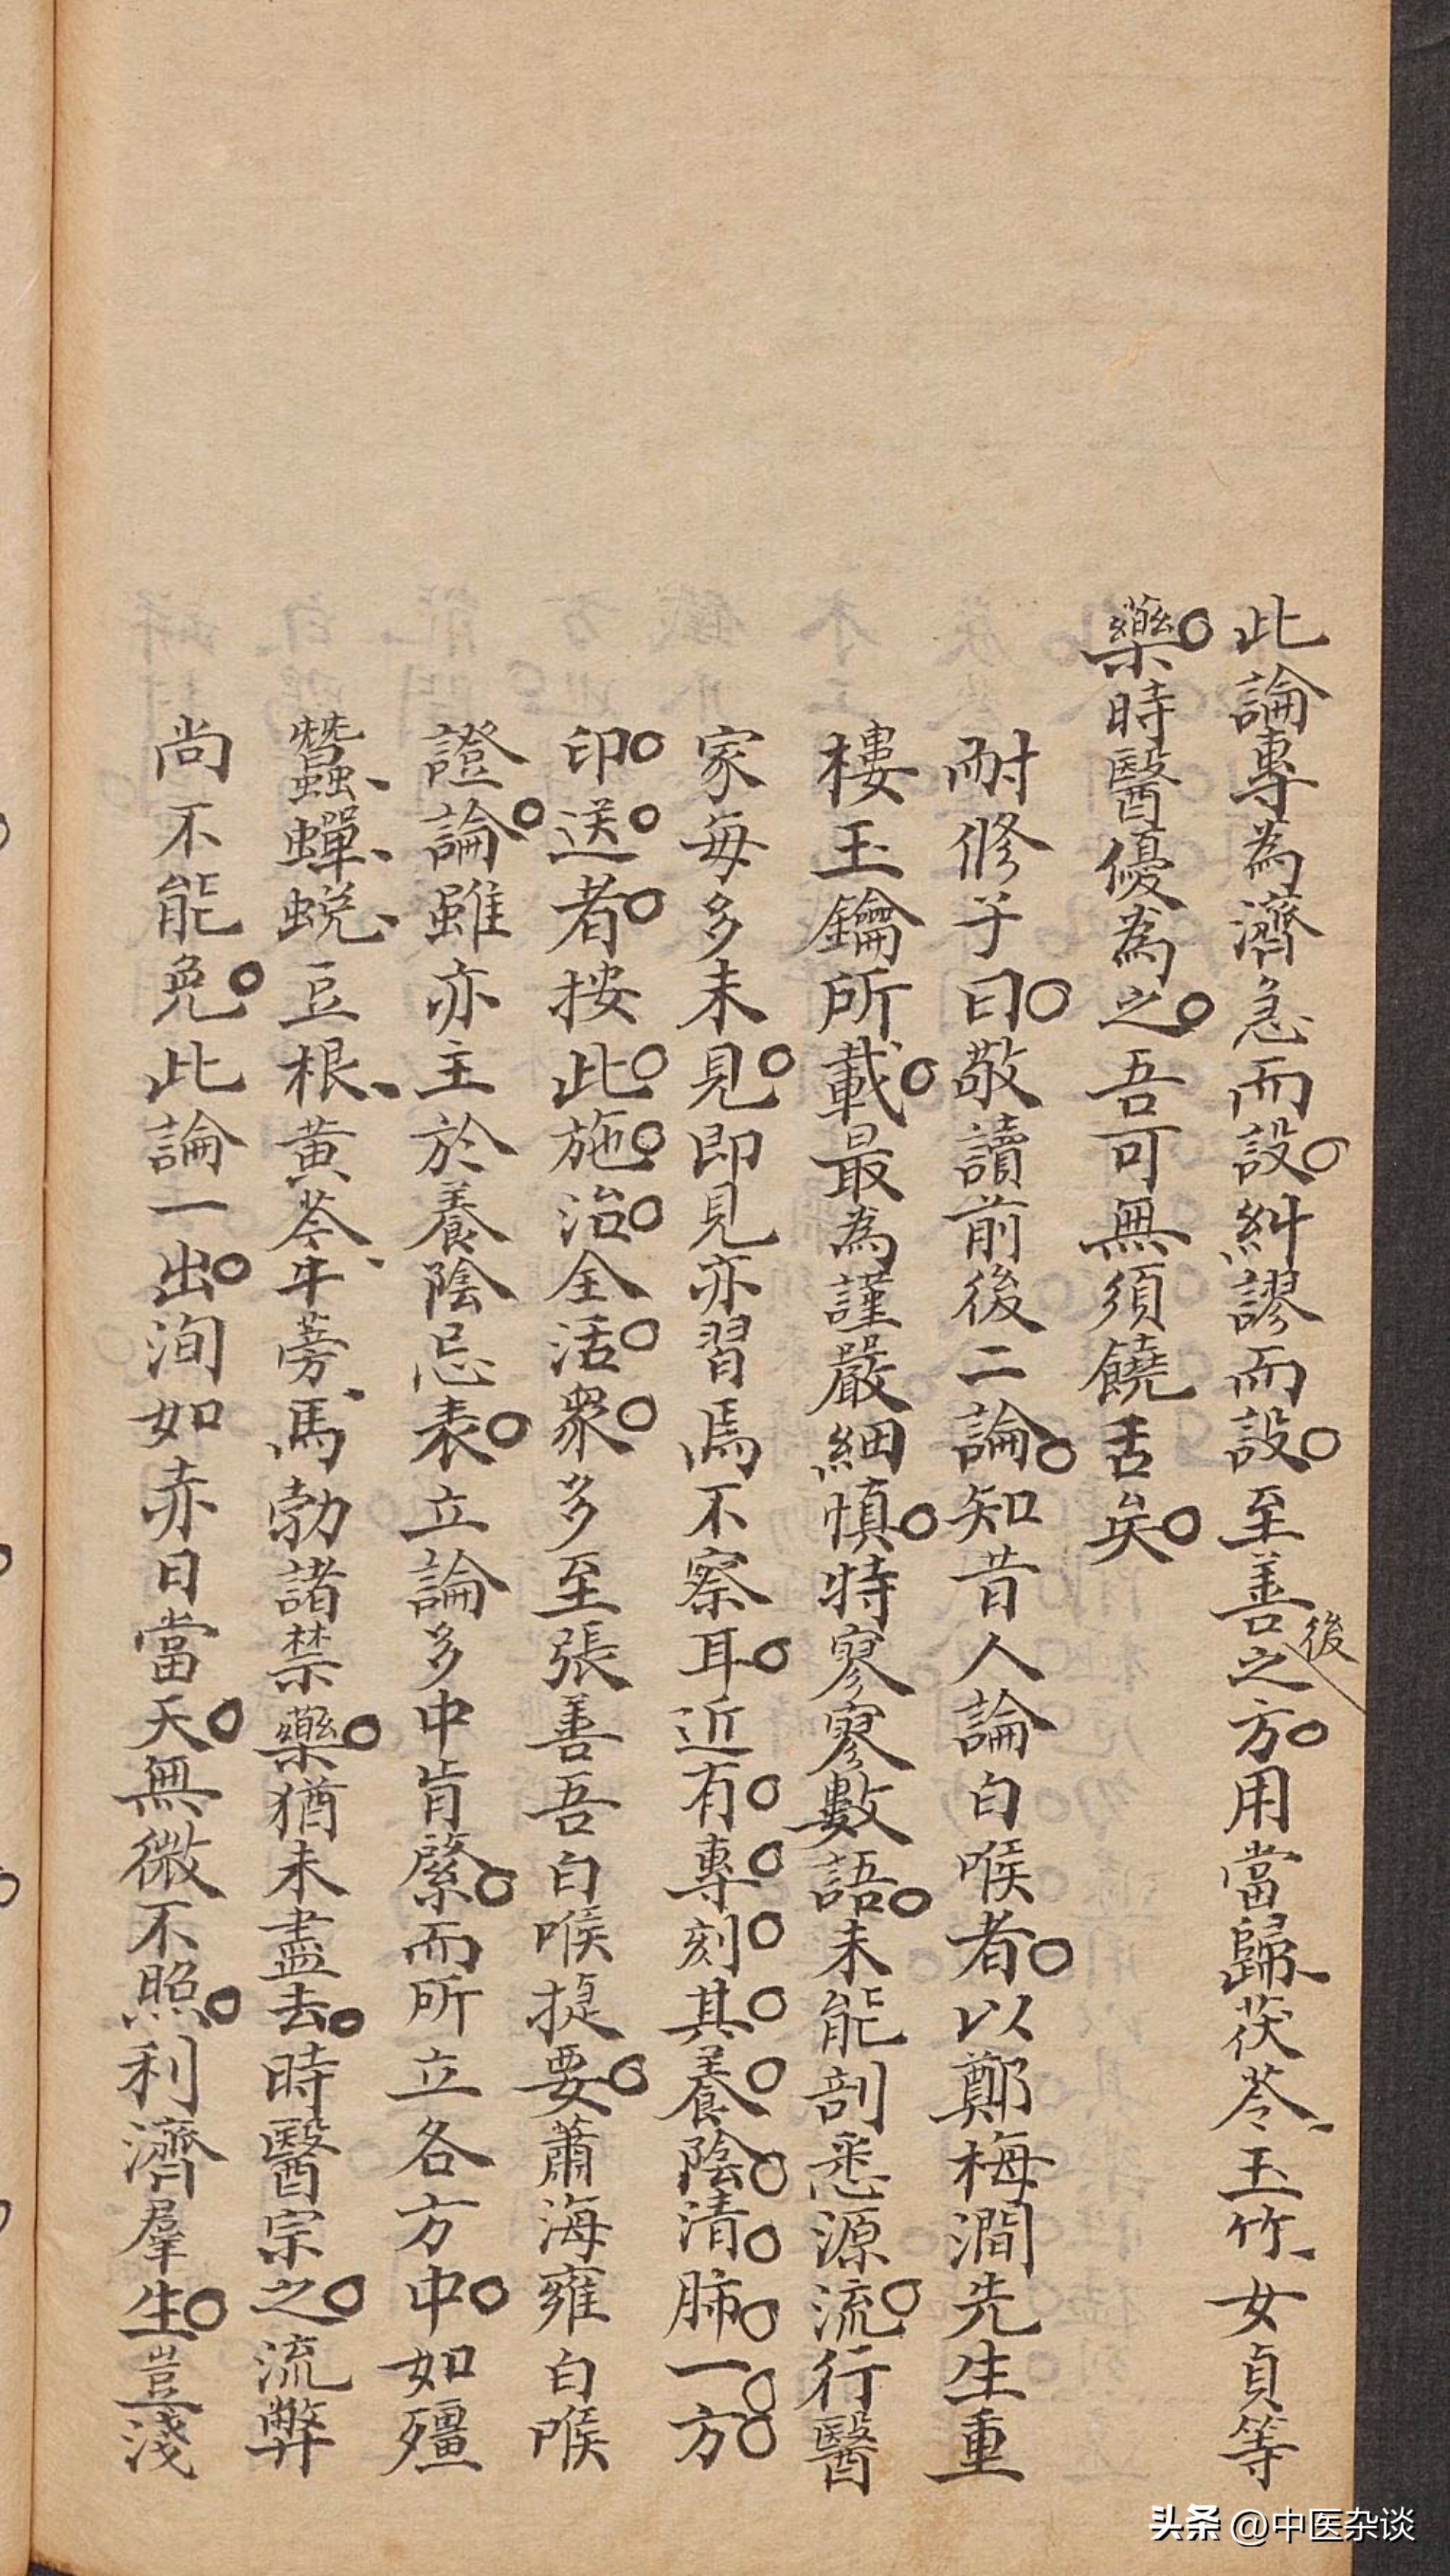 此論專為濟急而設糾謬而設至善後之方用當歸茯苓玉竹女貞等
藥時醫優為之吾可無須饒舌矣
耐修子曰敬讀前後二論知昔人論白喉者以鄭梅澗先生重
樓玉鑰所載最為謹嚴細慎特寥寥數語未能剖悉源流行醫
家每多未見即見亦習焉不察耳近有專刻其養陰清肺一方
印送者按此施治全活衆多至張善吾白喉捷要蕭海雍白喉
證論雖亦主於養陰忌表立論多中肯綮而所立各方中如殭
蠶蟬蛻豆根黃芩牛蒡馬勃諸禁藥猶未盡去時醫宗之流弊
尚不能免此論一出洵如赤日當天無微不照利濟羣生豈淺
头条 @中医杂谈